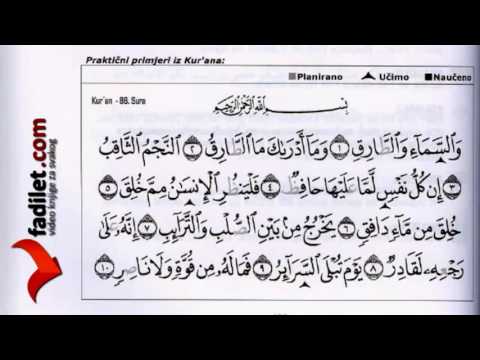 Praktični primjeri iz Kur'ana:
Planirano Učimo Naučeno
Kur'an - 86. Sura
بِسْمِ اللَّهِ الرَّحْمَٰنِ الرَّحِيمِ
وَالسَّمَآءِ وَالطَّارِقِ ١ وَمَآ أَدْرَىٰكَ مَا الطَّارِقُ ٢ النَّجْمُ الثَّاقِبُ
٣ إِن كُلُّ نَفْسٍ لَّمَّا عَلَيْهَا حَافِظٌ ٤ فَلْيَنظُرِ الْإِنسَٰنُ مِمَّ خُلِقَ ٥
خُلِقَ مِن مَّآءٍ دَافِقٍ ٦ يَخْرُجُ مِنۢ بَيْنِ الصُّلْبِ وَالتَّرَآئِبِ ٧ إِنَّهُۥ عَلَىٰ
رَجْعِهِۦ لَقَادِرٌ ٨ يَوْمَ تُبْلَى السَّرَآئِرُ ٩ فَمَا لَهُۥ مِن قُوَّةٍ وَلَا نَاصِرٍ ١٠
fadilet.com
video knjige za svakog